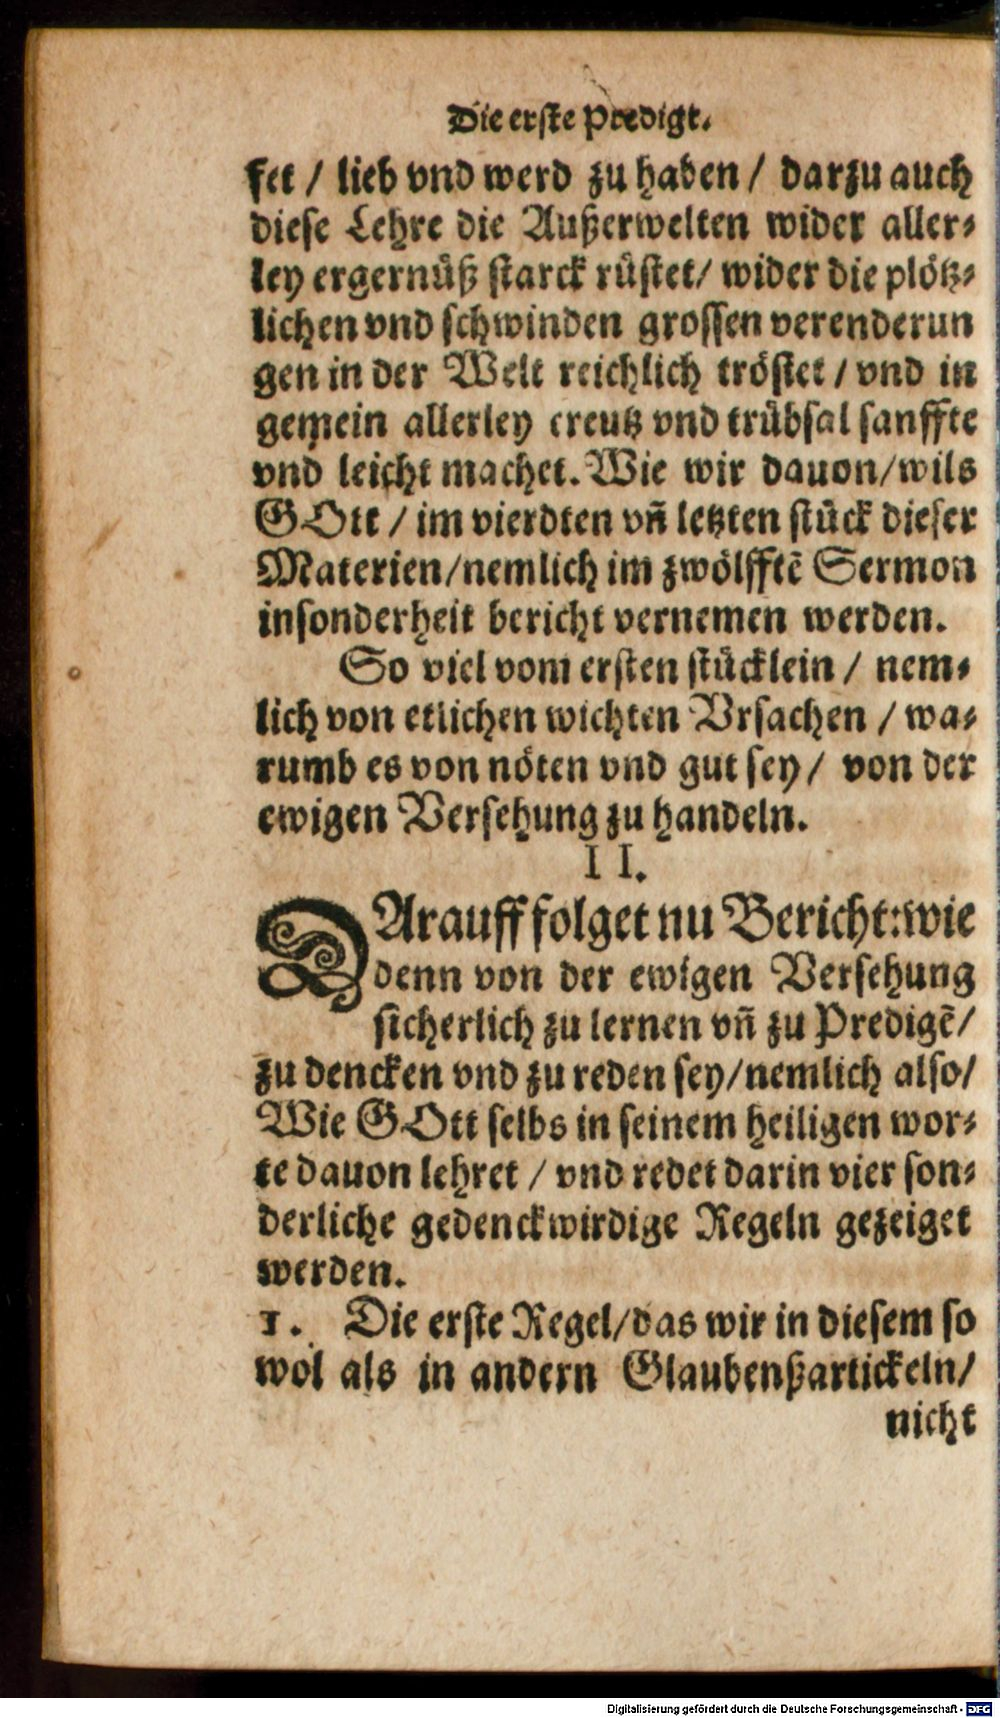 Die erste Predigt.
set / lieb vnd werd zu haben / darzu auch
diese Lehre die Außerwelten wider aller-
ley ergernüß starck rüstet/ wider die plötz-
lichen vnd schwinden grossen verenderun
gen in der Welt reichlich tröstet / vnd in
gemein allerley creutz vnd trübsal sanffte
vnd leicht machet. Wie wir dauon/wils
GOtt / im vierdten vñ letzten stück dieser
Materien/nemlich im zwölfftẽ Sermon
insonderheit bericht vernemen werden.
So viel vom ersten stücklein / nem-
lich von etlichen wichten Vrsachen / wa-
rumb es von nöten vnd gut sey / von der
ewigen Versehung zu handeln.
II.
DArauff folget nu Bericht: wie
denn von der ewigen Versehung
sicherlich zu lernen vñ zu Predigẽ/
zu dencken vnd zu reden sey/nemlich also/
Wie GOtt selbs in seinem heiligen wor-
te dauon lehret / vnd redet darin vier son-
derliche gedenckwirdige Regeln gezeiget
werden.
1. Die erste Regel/das wir in diesem so
wol als in andern Glaubenßartickeln/
nicht
Digitalisierung gefördert durch die Deutsche Forschungsgemeinschaft - DFG